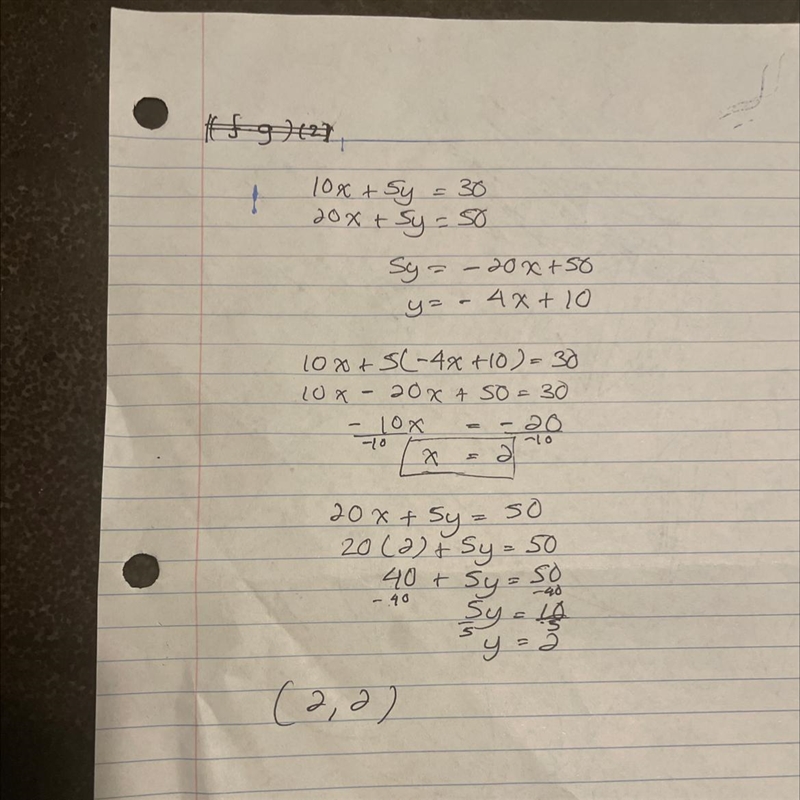 ((f-g)(2)
10x + 5y = 30
20x + 5y = 50
5y = -20x+50
y = -4x+10
10x+5(-4x+10)=30
10x - 20x + 50 = 30
-10x = -20
-10 -10
x = 2
20x + 5y = 50
20(2) + 5y = 50
40 + 5y = 50
-40 -40
5y = 10
5 5
y = 2
(2,2)